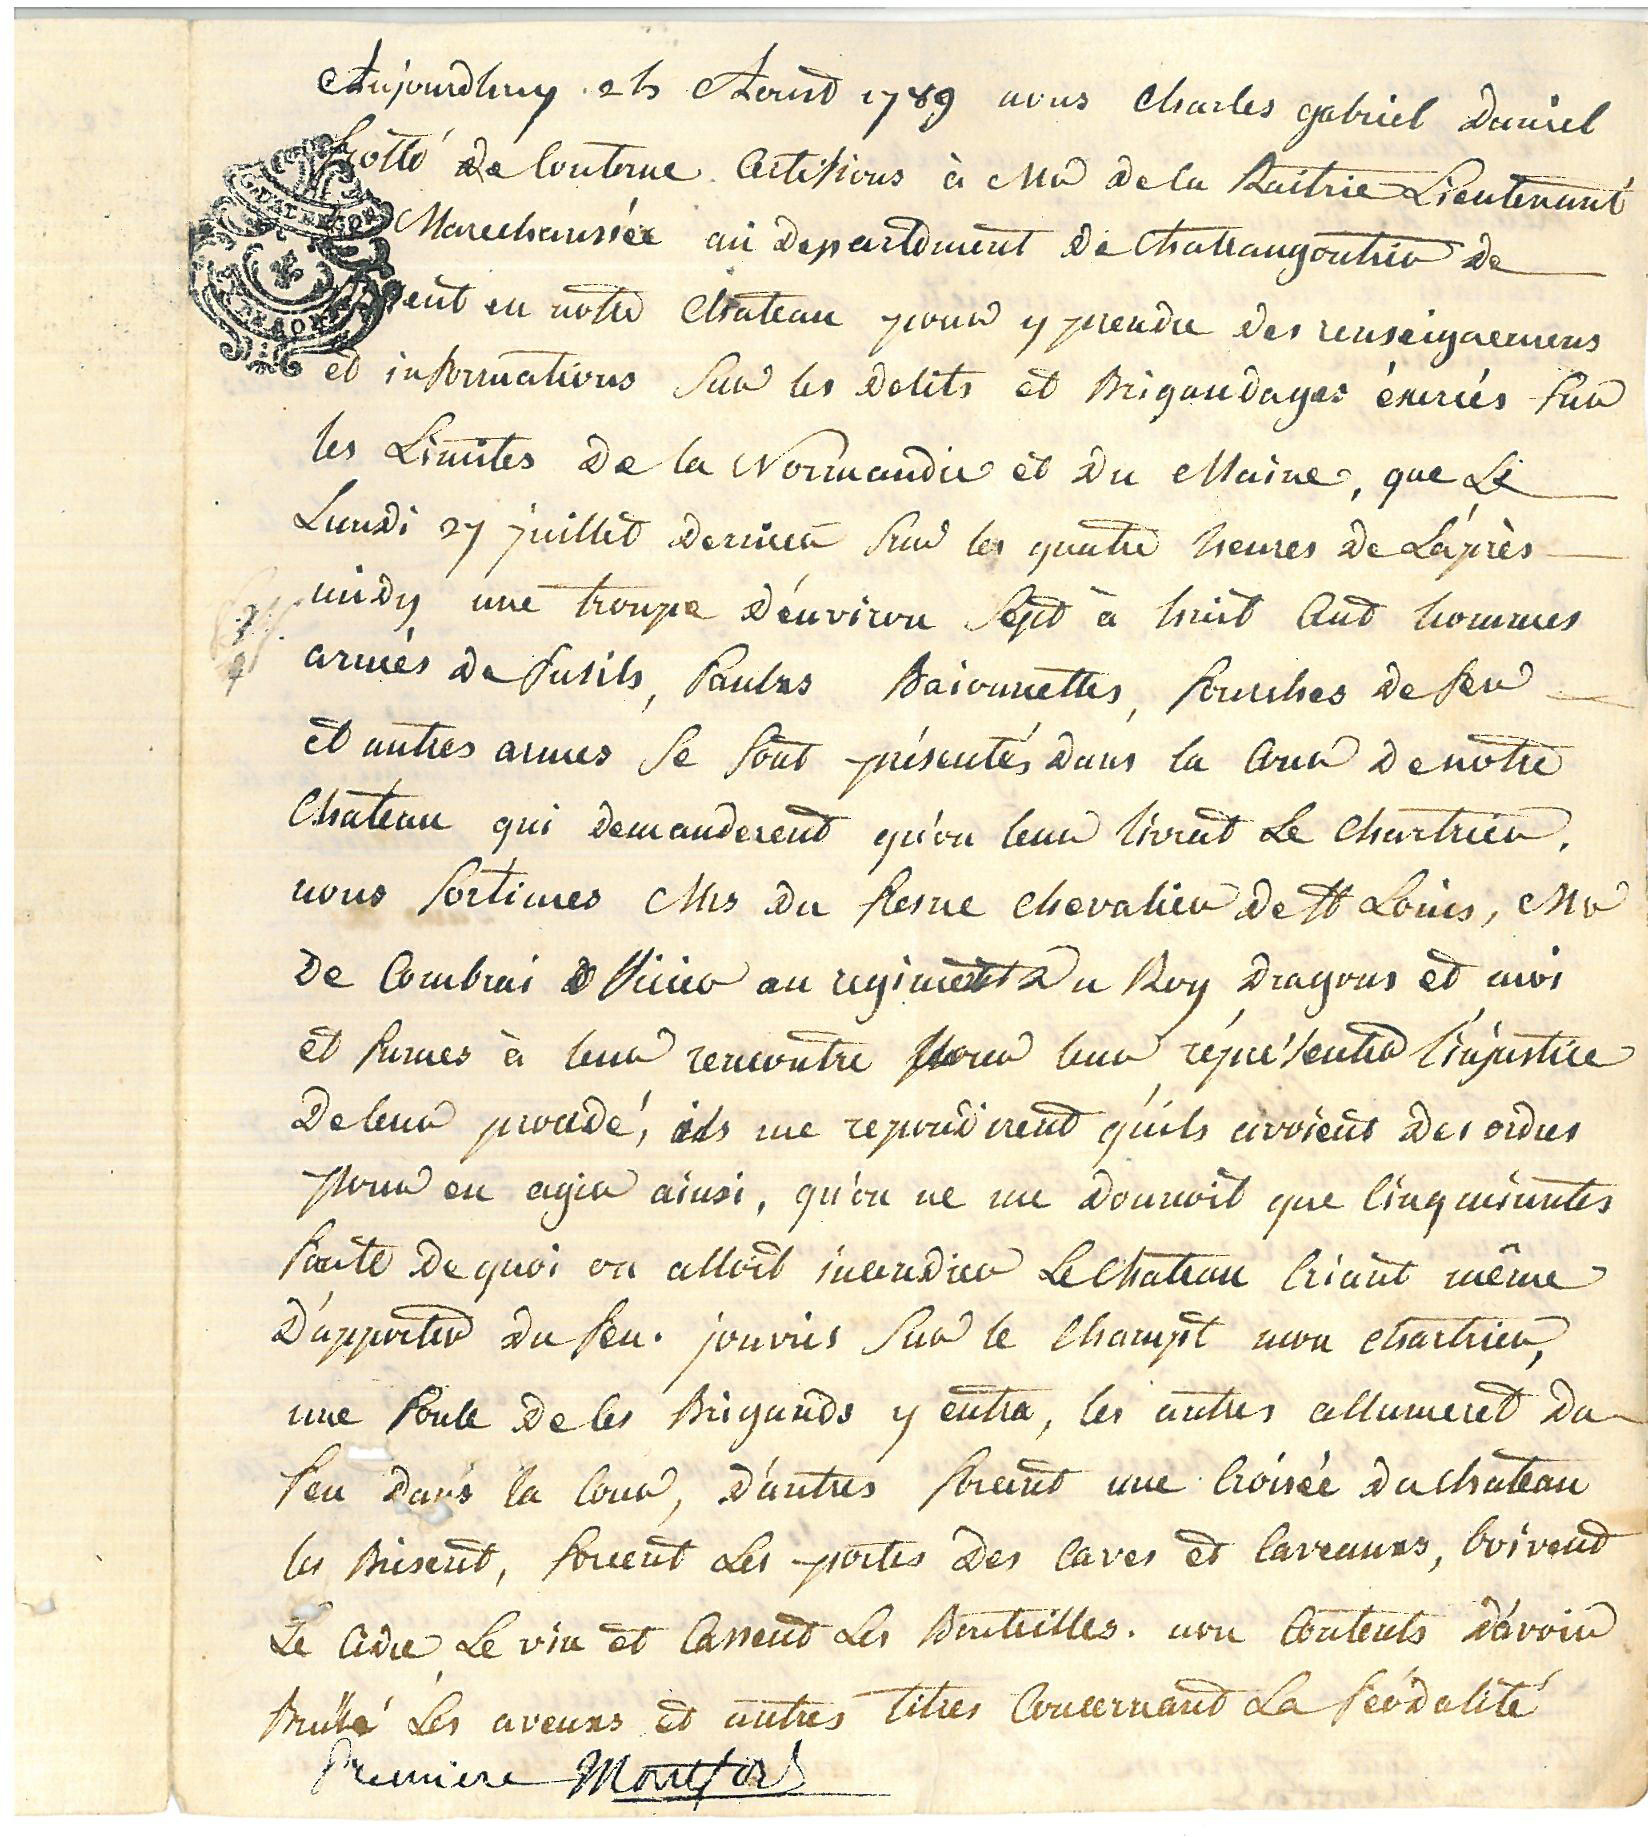 Aujourdhuy 25 Aoust 1789 nous Charles gabriel Daniel
frotté de Couterne Certifions à Mr de la Raitrie Lieutenant
Marechaussée au departement de Chateaugontier de
present en notre Chateau pour y prendre des renseignemens
et informations sur les delits et Brigandages éxercés sur
les Limites de la Normandie et du Maine, que Le
Lundi 27 juillet dernier sur les quatre heures de L'après
midy une troupe d'environ sept à huit Cent hommes
armés de fusils, faulxs Baionnettes, fourches de fer
et autres armes se sont présentés dans la Cour de notre
Chateau qui demanderent qu'on leur livrat Le Chartrier.
nous sortimes Mrs du fresne chevalier de St Louis, Mr
de Combrai officier au regiment du Roy dragons et moi
et fumes à leur rencontre pour leur répresenter l'injustice
de leur procédé, ils me repondirent qu'ils avoient des ordres
pour en agir ainsi, qu'on ne me donnoit que Cinq minutes
faute de quoi on alloit incendier Le Chateau Criant même
d'apporter du feu. jouvris sur le Champt mon Chartrier,
une foule de ces Brigands y entra, les autres allumeret du
feu dans la Cour, d'autres forcent une Croisée du Chateau
les Brisent, forcent Les portes des Caves et Caveauxs, boivent
Le Cidre Le vin et Cassent Les Bouteilles. non Contents d'avoir
Brullé Les aveuxs et autres titres Concernant La féodalité
Premiere Montfort